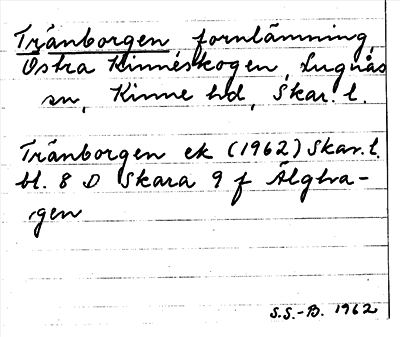 Tränborgen fornlämning,
Östra Kinneskogen, Lugnås
sn, Kinne hd, Skar. l.
Tränborgen ek (1962) Skar. l.
bl. 8 D Skara 9 f Älgha-
gen
S.S.-B. 1962